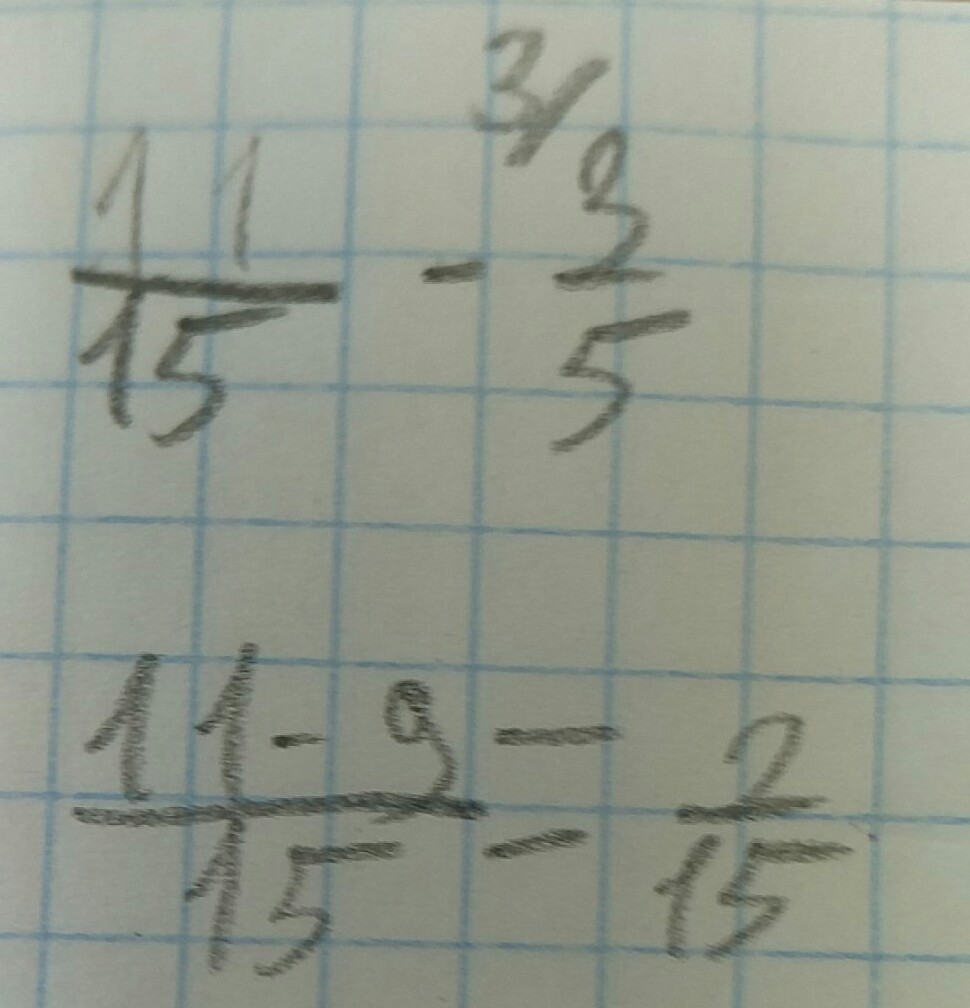 11/15 - 3/ 3/5
11-9/15 = 2/15